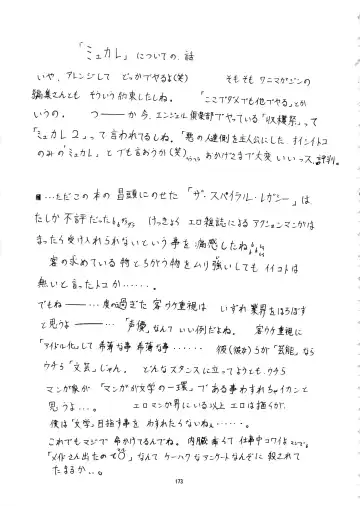 「ミュカレ」についての、話
いや、アレンジして どっかでやるよ(笑) そもそも ワニマガジンの
編集さんとも そういう約束したしね。 「ここでダメでも他でやる」とか
いうの。 つ——か今、エンジェル倶楽部でやっている「収穫祭」って
「ミュカレ2」って言われてるしね。「悪の人達側を主人公にした、オイシイトコ
のみの「ミュカレ」とでも言おうか(笑) おかげさまで大変 いいっス、評判。
…ただこの本の冒頭にのせた「ザ・スパイラル・レガシー」は
たしか不評だった けっきょく エロ雑誌による アクションマンガは
まったく受け入れられないという事を 痛感したね
客の求めている物とちがう物をムリ強いしても イイコトは
無いと言ったトコか……。
でもね——…度の過ぎた 客ウケ重視は いずれ業界をほろぼす
と思うよ——…「声優」なんて いい例だよね。 客ウケ重視に
「アイドル化」して 希薄な事 希薄な事…… 彼(彼女)らが「芸能」なら
ウチら「文芸」じゃん。 どんなスタンスに立ってようとも、ウチら
マンガ家が 「マンガが文学の一環」で ある事わすれちゃイカンと
思うよ…。 エロマンガ界にいる以上 エロは描くが、
僕は「文学」目指す事を わすれたらないねぇ……。
これでもマジで 命かけてるんでね。 内臓 痛くて 仕事中コワイよ
「メイドさん出たので○」なんて ケーハクなアンケートなんぞに 殺されて
たまるか…。
173